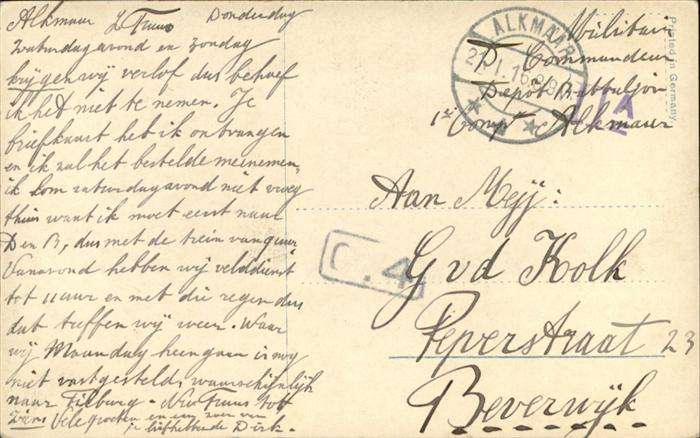 Alkmaar L Truus Donderdag
Zaturdagavond en zondag
krijgen wij verlof dus behoef
ik het niet te nemen. Je
briefkaart heb ik ontvangen
en ik zal het bestelde meenemen,
ik kom zaturdagavond niet vroeg
thuis want ik moet eerst naar
Den B, dus met de trein van
Vanavond hebben wij velddienst
tot 11 uur en met die regen dus
dat treffen wij weer. Waar
wij Maandag heengaan is nog
niet vastgesteld, waarschijnlijk
naar Tilburg. Nu Truus tot
ziens Vele groeten en een zoen van
je liefhebbende Dirk.
ALKMAAR
Militair
D Commandeur
Depôt Battaljon
1e Comp Alkmaar
Printed in Germany
C.4
Aan Mejj:
G vd Kolk
Peperstraat 23
Beverwijk